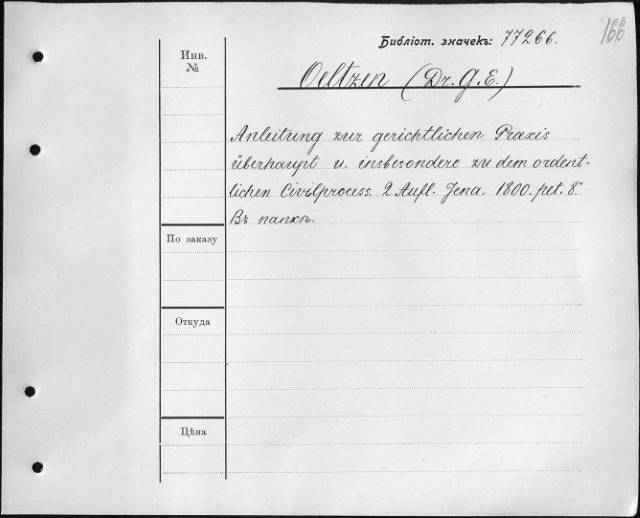 166
Библіот. значекъ: 77266.
Инв.
№
Oeltzen (Dr. G. E.)
Anleitung zur gerichtlichen Praxis
überhaupt u. insbesondere zu dem ordent-
lichen Civilprocess. 2 Aufl. Jena. 1800. pet. 8°
Въ папкѣ.
По заказу
Откуда
Цѣна